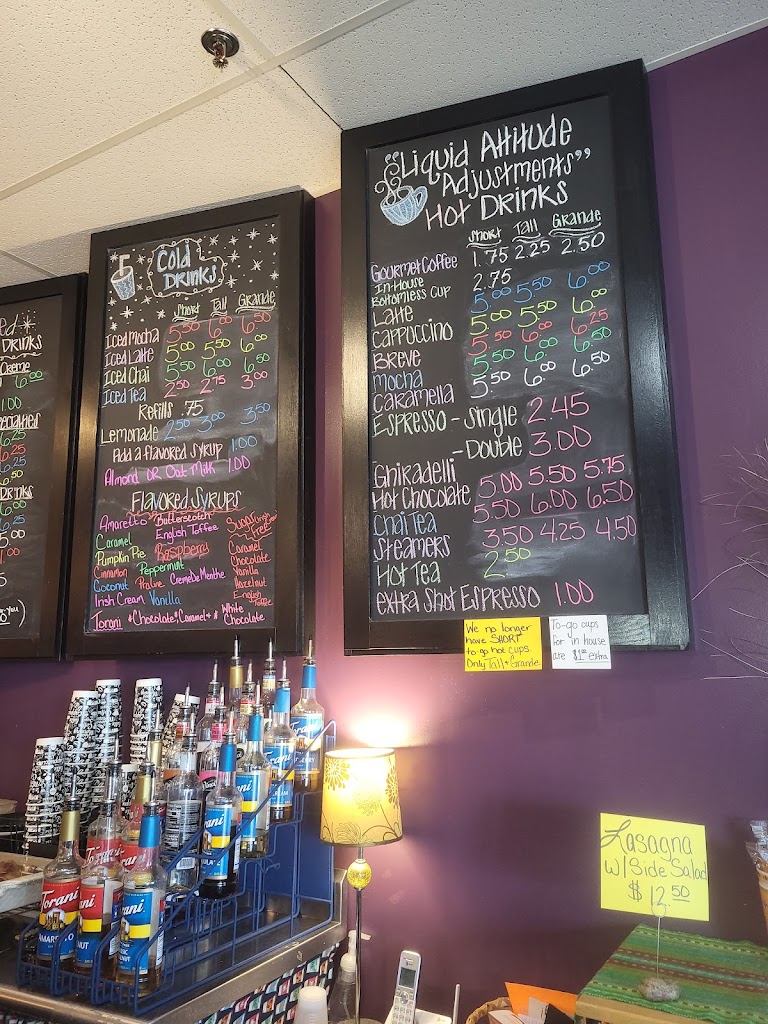 ed
DRINKS
Creme
6.00
1.00
6.25
6.25
6.25
6.50
DRINKS
6.00
6.25
6.00
1.00
Cold
DRINKS
Short Tall Grande
Iced Mocha 5.50 6.00 6.50
Iced Latte 5.00 5.50 6.00
Iced Chai 5.50 6.00 6.50
Iced Tea 2.50 2.75 3.00
Refills .75
Lemonade 2.50 3.00 3.50
Add a flavored syrup 1.00
Almond OR Oat Milk 1.00
Flavored Syrups
Amaretto Butterscotch
English Toffee
Caramel
Pumpkin Pie Raspberry
Cinnamon Peppermint
Coconut Praline Creme De Menthe
Irish Cream Vanilla
Sugar Free
Caramel
Chocolate
Vanilla
Hazelnut
English
Toffee
Torani *Chocolate* Caramel* * White
Chocolate
"Liquid Attitude
Adjustments"
Hot DRINKS
Short Tall Grande
Gourmet Coffee 1.75 2.25 2.50
In-House
Bottomless Cup 2.75
Latte 5.00 5.50 6.00
Cappuccino 5.00 5.50 6.00
Breve 5.50 6.00 6.25
Mocha 5.50 6.00 6.50
Caramella 5.50 6.00 6.50
Espresso - Single 2.45
- Double 3.00
Ghiradelli
Hot Chocolate 5.00 5.50 5.75
Chai Tea 5.50 6.00 6.50
Steamers 3.50 4.25 4.50
Hot Tea 2.50
extra Shot Espresso 1.00
We no longer
have SHORT
to-go hot cups
Only Tall & Grande
To-go cups
for in house
are $1.00 extra
Lasagna
W/ Side Salad
$12.50
Torani
Torani
Torani
Torani
AMARETTO